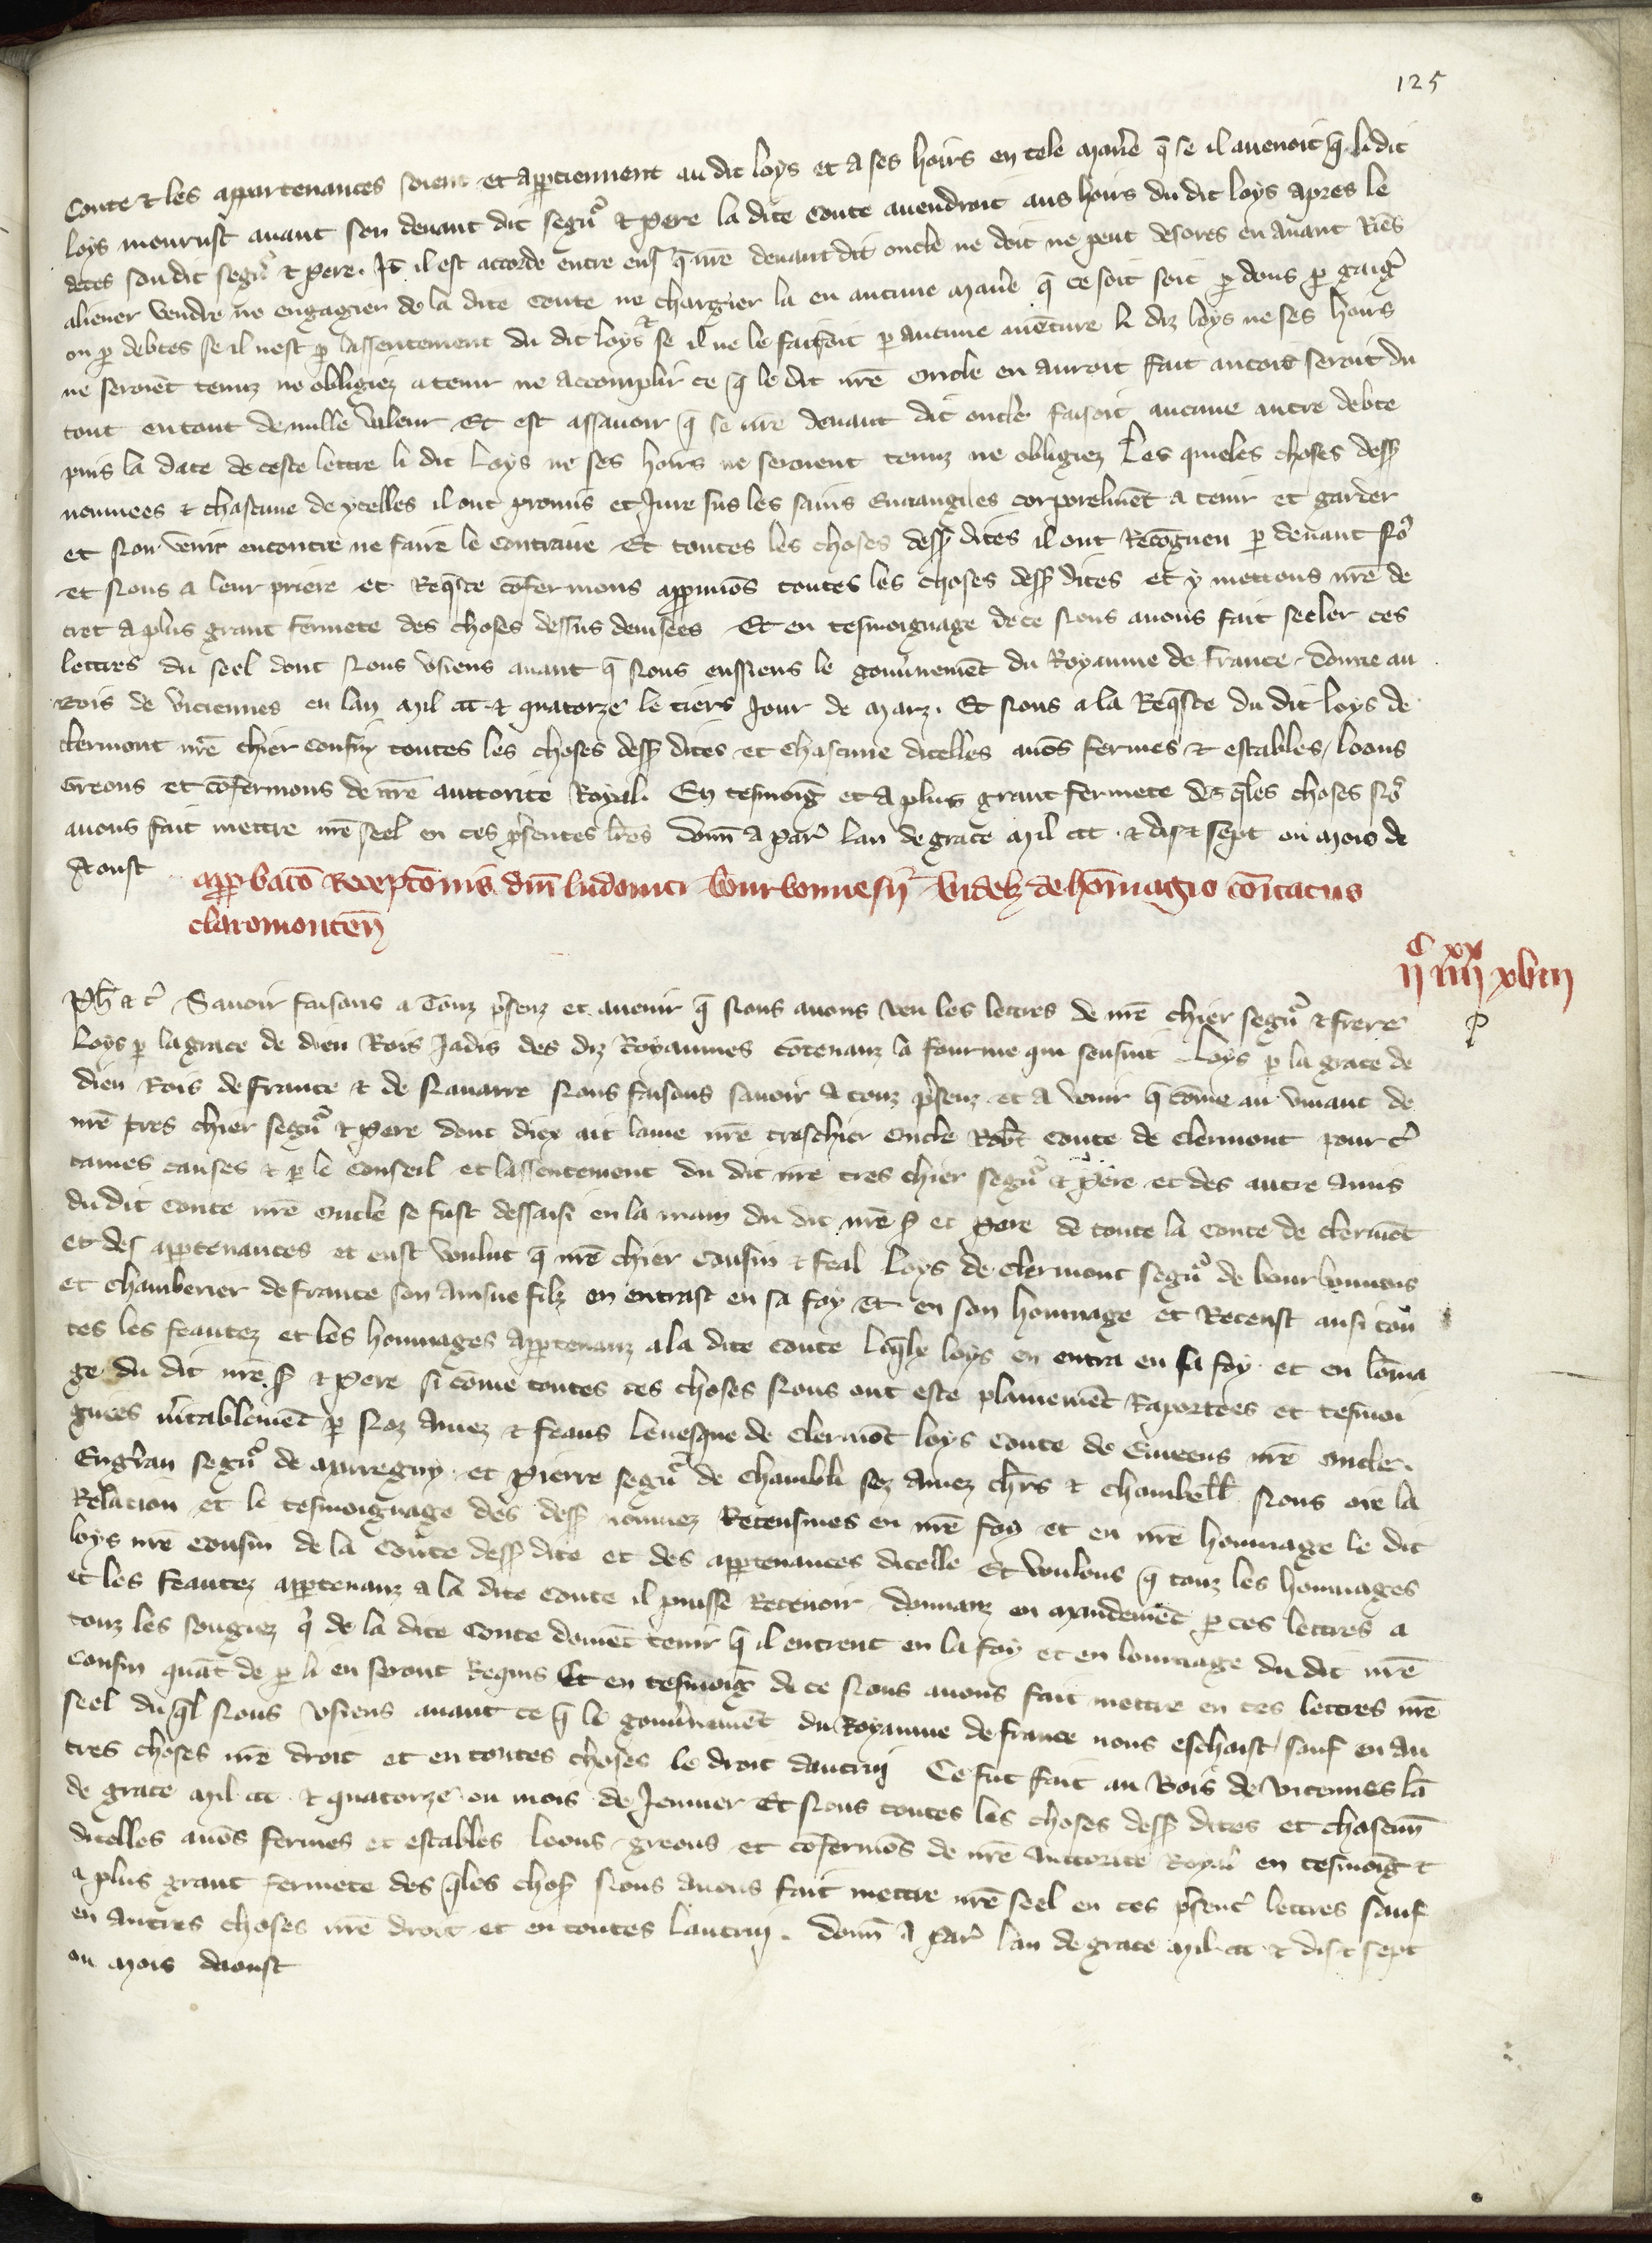 125
Conte et les appartenances soient et appartiennent au dit loys et a ses hoirs en tele manere que se il auenoit que li dit
loys mourust auant son deuant dit segneur et pere la dite Conte auendroit aus hoirs du dit loys apres le
deces son dit segneur et pere. Item il est accorde entre eus que nostre deuant dit oncle ne doit ne peut desores en auant Riens
aliener vendre ne engagier de la dite Conte ne chargier la en aucune manere que ce soit soit par dons par gaige
ou par debtes se il nest par lassentement du dit loys et se il ne le faisoit par aucune auenture li diz loys ne ses hoirs
ne seroient tenuz ne obligiez a tenir ne accomplir ce que le dit nostre oncle en auroit fait ancois seroit du
tout en tout de nulle valeur Et est assauoir que se nostre deuant dit oncle faisoit aucune autre debte
puis la date de ceste lettre li dit Loys ne ses hoirs ne seroient tenuz ne obligiez Les queles choses dessus
nommees et chascune de ycelles il ont promis et Jure sus les sains Euuangiles corporelment a tenir et garder
et Non venir encontre ne faire le contraire Et toutes les choses dessus dites il ont Recogneu par deuant Nous
et Nous a leur priere et Requeste confermons approuuons toutes les choses dessus dites et y mettons nostre de
cret a plus grant fermete des choses dessus deuisees Et en tesmoignage de ce Nous auons fait seeler ces
lettres du seel dont Nous vsiens auant que Nous eussiens le gouuernement du Royaume de france. donne au
Bois de viciennes en lan Mil ccc et quatorze le tiers Jour de Marz. Et Nous a la Requeste du dit loys de
clermont nostre chier Cousin toutes les choses dessus dites et Chascune dicelles auons fermes et estables, loons
Greons et confermons de nostre auttorite Royal. En tesmoing et a plus grant fermete des queles choses Nous
auons fait mettre nostre seel en ces presentes lettres donn a Paris lan de grace Mil ccc et dis et sept ou Mois de
Aoust
approbacio Receptionis domini ludouici Bourbonnesii videlicet de homagio comitatus
claromonten
ii C iiii xx xviii
Ph et c Sauoir faisons a Touz presenz et auenir que Nous auons veu les lettres de nostre chier segneur et frere
Loys par la grace de dieu Rois Jadis des diz Royaumes contenanz la fourme qui sensuit Loys par la grace de
dieu Rois de france et de Nauarre Nous faisons sauoir a touz presenz et a venir que comme au viuant de
nostre tres chier segneur et Pere dont diex ait lame nostre treschier Oncle Robert Conte de Clermont pour cer
taines causes et par le Conseil et lassentement du dit nostre tres chier segneur et Pere et des autre Amis
du dit Conte nostre Oncle se fust dessaisi en la main du dit nostre s et Pere de toute la Conte de Clermont
et des appartenances et eust voulut que nostre chier Cousin et feal Loys de Clermont segneur de bourbonnois
et Chamberier de france son ainsne filz en entrast en sa foy Et en son hommage et Receust ausi tou
tes les feautez et les hommages appartenanz a la dite Conte lequelx loys en entra en sa foy et en lomma
ge du dit nostre s et Pere si comme toutes ces choses Nous ont este plainement Raportees et tesmoi
gnees veritablement par Noz Amez et feaus Leuesque de Clermont Loys Conte de Eureeus nostre Oncle.
Engerran segneur de Marregny et Pierre segneur de Chambli sez Amez chers et chambell Nous oie la
Relacion et le tesmoignage des dessus nommez Receusmes en nostre foy et en nostre hommage le dit
loys nostre Cousin de la Conte dessus dite et des appartenances dicelle Et voulons que touz les hommages
et les feautez appartenanz a la dite Conte il puisse Receuoir donnanz en Mandement par ces lettres a
touz les sougiez qui de la dite Conte doiuent tenir que il entrent en la foy et en lommage du dit nostre
Cousin quant de par li en seront Requis Et en tesmoing de ce Nous auons fait mettre en ces lettres nostre
seel du quel Nous vsiens auant ce que le gouuernement du Royaume de france nous escheist / sauf en au
tres choses nostre droit et en toutes choses le droit dautrui Ce fut fait au Bois de vicennes lan
de grace Mil ccc et quatorze ou mois de Jenuier Et Nous toutes les choses dessus dites et chascunn
dicelles auons fermes et estables loons greons et confermons de nostre auttorite Royal en tesmoing et
a plus grant fermete des queles chos Nous auons fait mettre nostre seel en ces presentes lettres sauf
en autres choses nostre droit et en toutes lautrui. donn a Paris lan de grace Mil ccc et dis et sept
ou Mois daoust